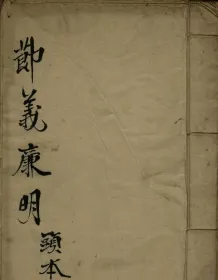 節義廉明
頭本